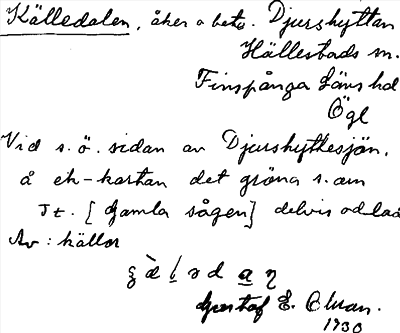 Källedalen, åker o bete. Djurshyttan
Hällestads sn.
Finspånga läns hd
Ögl
Vid s.ö. sidan av Djurshyttesjön.
å ek-kartan det gröna s. om
J t. [Gamla sågen] delvis odlad
Av: källor
Gustaf E.
1930